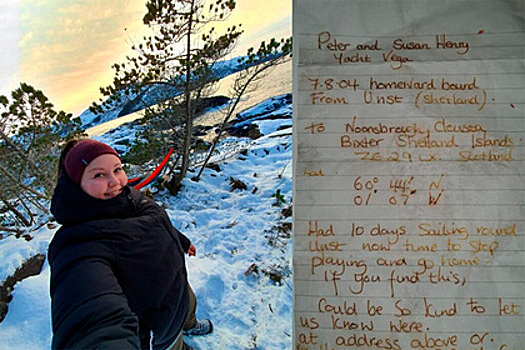 Peter and Susan Henry
Yacht Vega
7-8-04 homeward bound
From Unst (Shetland).
to Noonsbrough, Clousea
Bixter Shetland Islands
ZE29 Scotland
60° 44' N
01° 07' W
Had 10 days Sailing round
Unst now time to stop
playing and go home
If you find this,
Could be so kind to let
us know were.
at address above or.